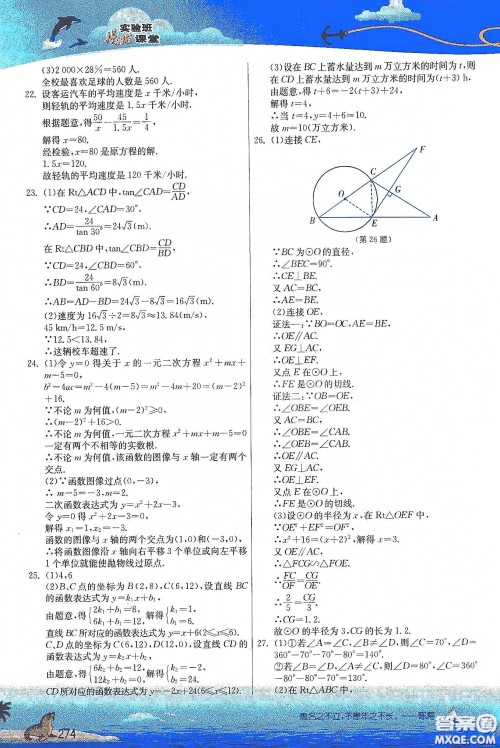 实验班
提优课堂
(3)2 000×28%=560 人.
全校最喜欢足球的人数是 560 人.
22. 设客运汽车的平均速度是 x 千米/小时,
则轻轨的平均速度是 1.5x 千米/小时.
根据题意,得50/x-45/1.5x=1/4,
解得 x=80.
经检验,x=80 是原方程的解.
1.5x=120.
故轻轨的平均速度是 120 千米/小时.
23. (1)在 Rt△ACD 中,tan∠CAD=CD/AD,
∵CD=24,∠CAD=30°,
∴AD=24/tan 30°=24√3(m).
在 Rt△CBD 中,tan∠CBD=CD/BD,
∵CD=24,∠CBD=60°,
∴BD=24/tan 60°=8√3(m).
∴AB=AD-BD=24√3-8√3=16√3(m).
(2)速度为 16√3÷2=8√3≈13.84(m/s),
45 km/h=12.5 m/s,
∵12.5<13.84,
∴这辆校车超速了.
24. (1)令 y=0 得关于 x 的一元二次方程 x²+mx+
m-5=0,
b²-4ac=m²-4(m-5)=m²-4m+20=(m-2)²
+16.
∵不论 m 为何值,(m-2)²≥0,
∴(m-2)²+16>0.
∴不论 m 为何值,一元二次方程 x²+mx+m-5=0
一定有两个不相等的实数根.
∴不论 m 为何值,该函数的图像与 x 轴一定有两个
交点.
(2)∵函数图像过点(0,-3),
∴m-5=-3,m=2.
二次函数表达式为 y=x²+2x-3,
令 y=0 得 x²+2x-3=0.
解得 x₁=1,x₂=-3.
函数的图像与 x 轴的两个交点为(1,0)和(-3,0),
∴将函数图像沿 x 轴向右平移 3 个单位或向左平移
1 个单位就能使抛物线过原点.
25. (1)4,6
(2)B、C 点的坐标为 B(2,8),C(6,12),设直线 BC
的函数表达式为 y=k₁x+b₁,
由题意,得{2k₁+b₁=8, 6k₁+b₁=12, 解得{k₁=1, b₁=6.
直线 BC 所对应的函数表达式为 y=x+6(2≤x≤6).
C、D 点的坐标为 C(6,12),D(12,0),设直线 CD 的
函数表达式为 y=k₂x+b₂,
由题意,得{6k₂+b₂=12, 12k₂+b₂=0, 解得{k₂=-2, b₂=24.
CD 所对应的函数表达式为 y=-2x+24(6≤x≤12).
(3)设在 BC 上蓄水量达到 m 万立方米的时间为 t,则
在 CD 上蓄水量达到 m 万立方米的时间为(t+3) h.
由题意,得 t+6=-2(t+3)+24.
解得 t=4.
∴当 t=4,y=4+6=10.
故 m=10(万立方米).
26. (1)连接 CE,
F
C
G
O
B
E
A
(第 26 题)
∵BC 为⊙O 的直径,
∴∠BEC=90°.
∴CE⊥BE.
又 AC=BC,
∴AE=BE.
(2)连接 OE,
证法一:∵BO=OC,AE=BE,
∴OE∥AC.
又 EF⊥AC,
∴OE⊥EF.
又点 E 在⊙O 上,
∴FE 是⊙O 的切线.
证法二:∵OB=OE,
∴∠OBE=∠OEB.
又 AC=BC,
∴∠OBE=∠CAE.
∴∠OEB=∠CAE.
∴OE∥AC.
又 EF⊥AC,
∴OE⊥EF.
又点 E 在⊙O 上,
∴FE 是⊙O 的切线.
(3)设⊙O 的半径为 x,在 Rt△OEF 中,
∵OE²+EF²=OF²,
∴x²+16=(x+2)²,解得 x=3.
又 OE∥AC,
∴△FCG∽△FOE.
∴FC/OF=CG/OE.
∴2/5=CG/3.
∴CG=1.2.
故⊙O 的半径为 3,CG 的长为 1.2.
27. (1)①若∠A=∠C,∠B≠∠D,则∠C=70°,∠D=
360°-70°-70°-80°=140°.
②若∠A≠∠C,∠B=∠D,则∠D=80°,∠C=
360°-80°-80°-70°=130°.
(2)在 Rt△ABC 中,
患名之不立,不患年之不长。
274
答案
MXQE.COM